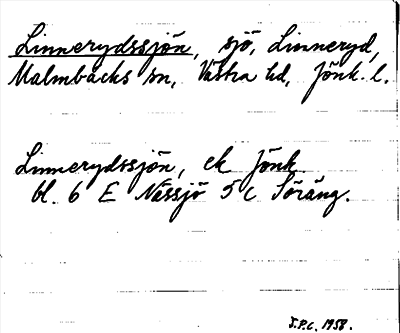 Linnerydssjön, sjö, Linneryd,
Malmbäcks sn, Västra hd, Jönk. l.
Linnerydssjön, ek Jönk
bl. 6 E Nässjö 5 c Söräng.
J.P.C. 1958.